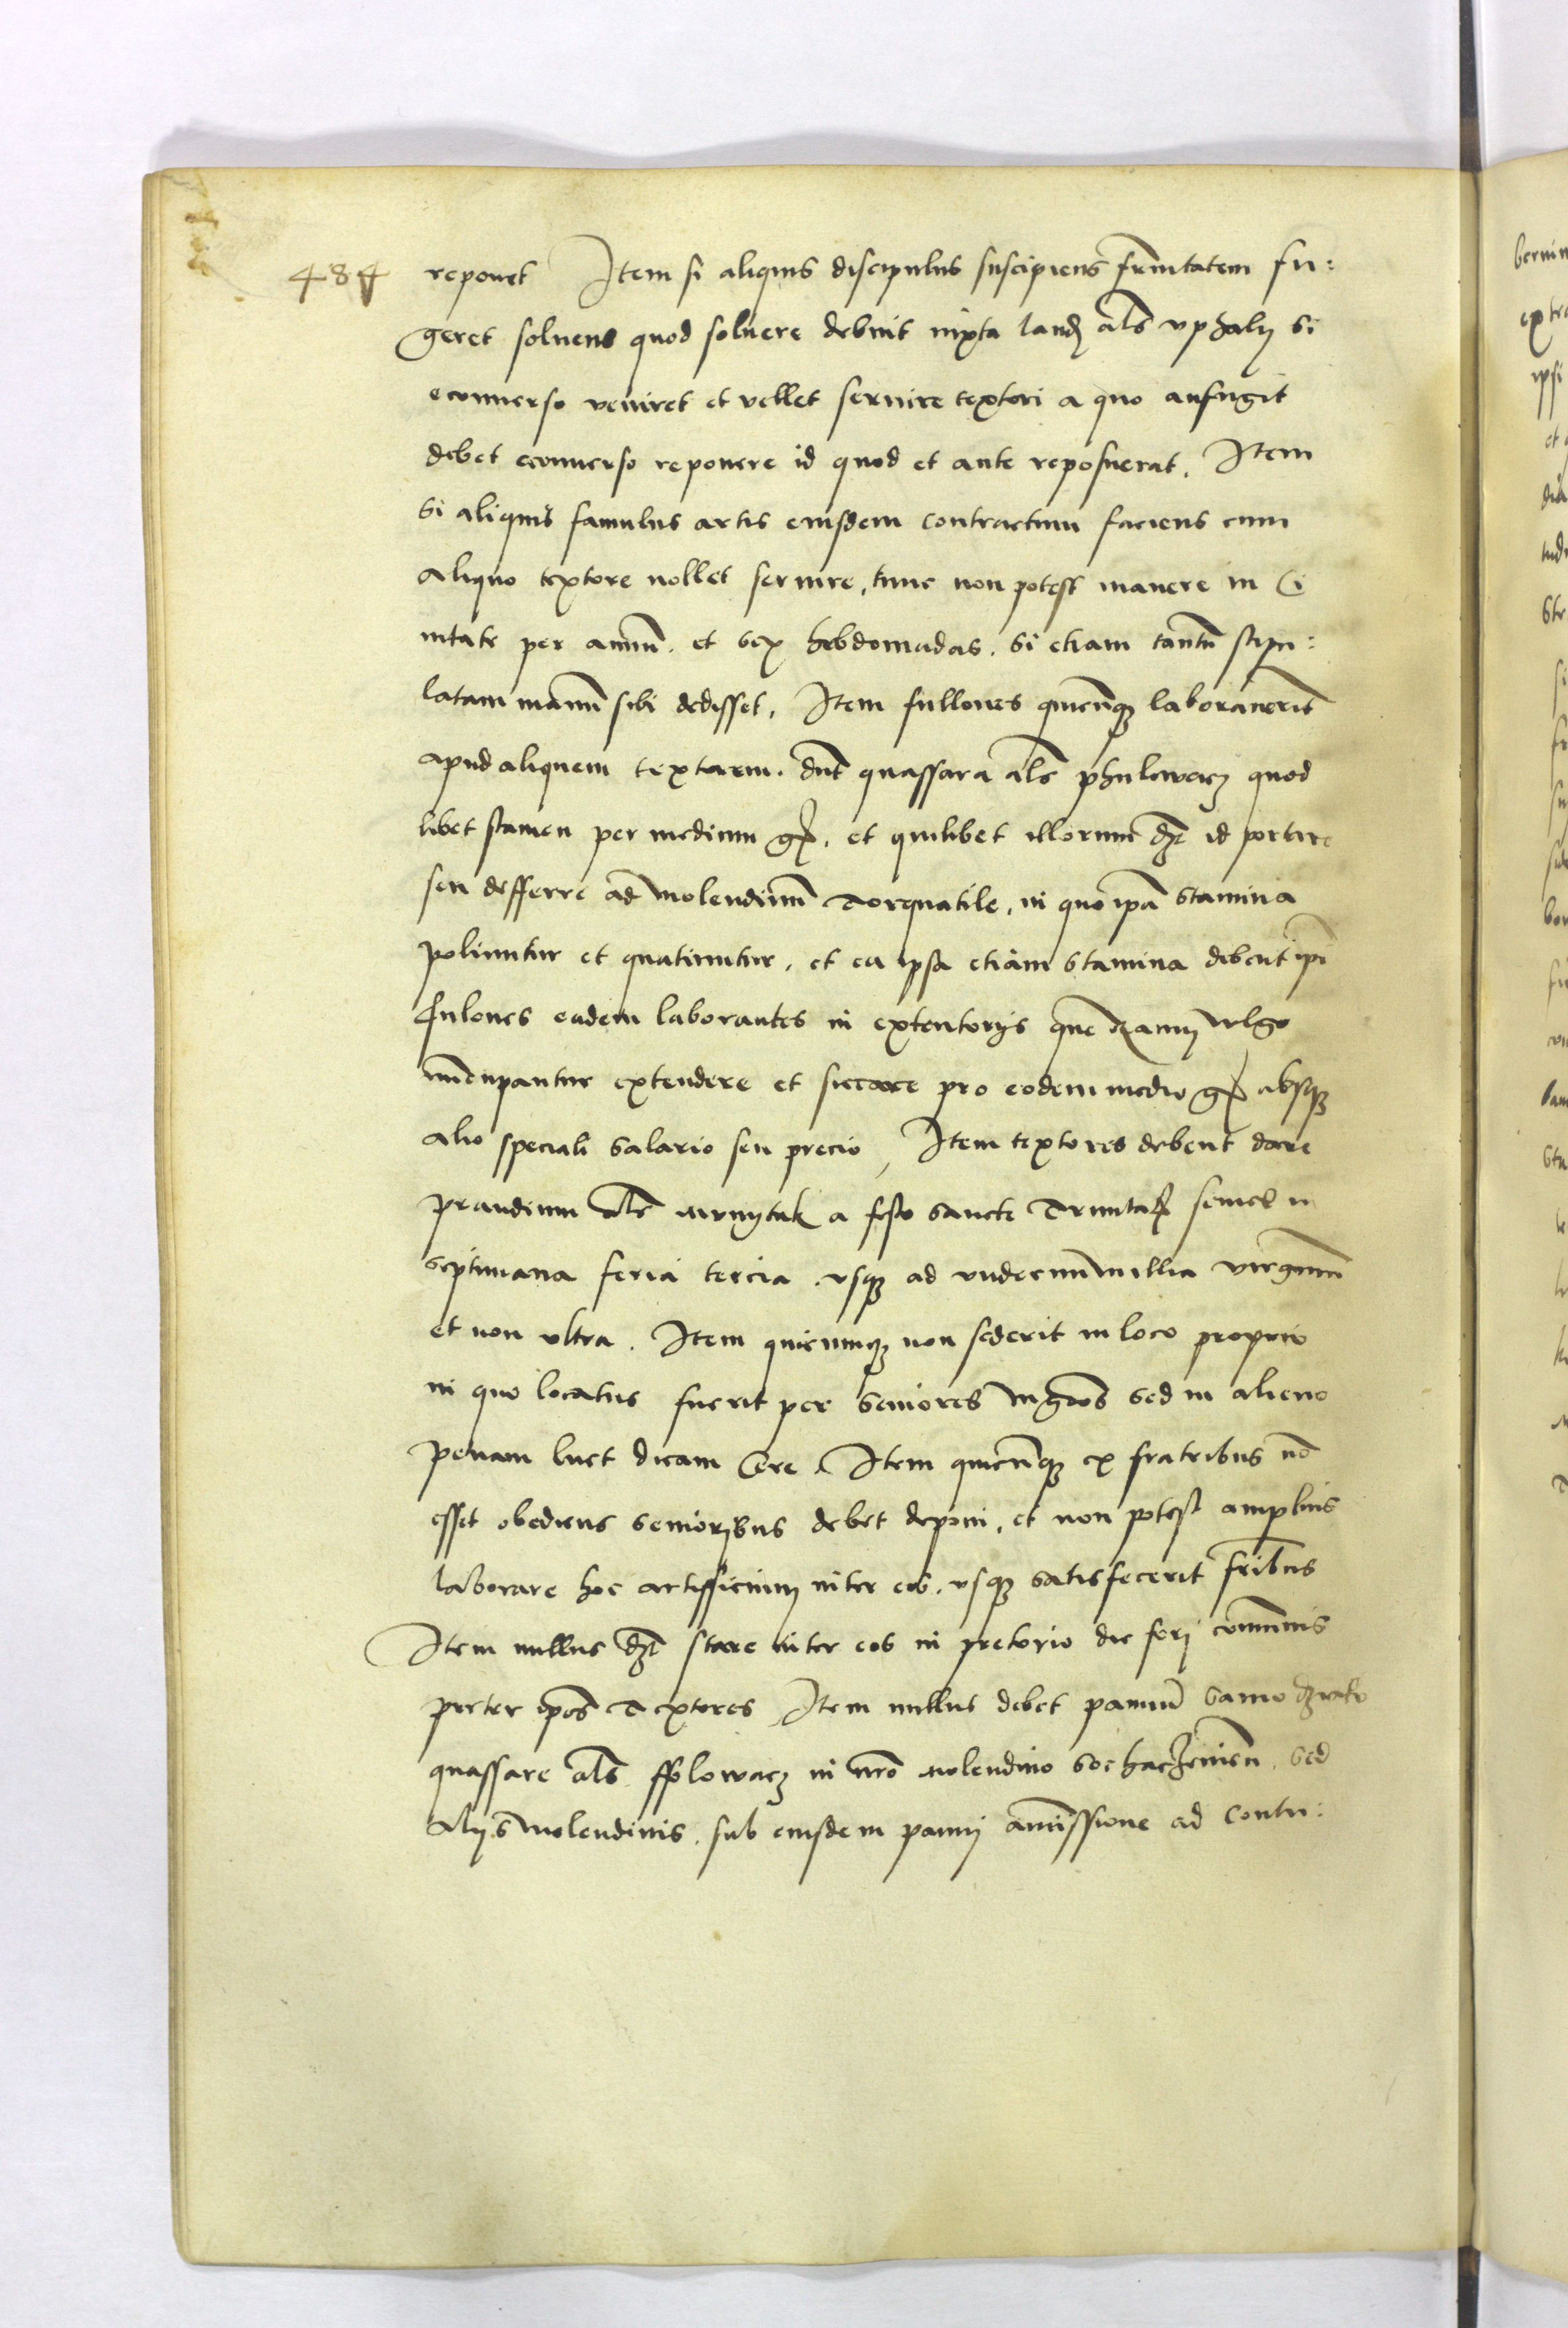 484
reponet Item si aliquis discipulus suscipiens frnitatem fu:
geret soluens quod soluere debuit iuxta laudj als vphaly si
econuerso veniret et vellet seruire textori a quo aufugit
debet econuerso reponere id quod et ante reposuerat. Item
si aliquis famulus artis eiusdem contractum faciens cum
aliquo textore nollet seruire, tunc non potest manere in Ci
uitate per annum. et sex hebdomadas. si etiam tantum stipu:
latam manum sibi dedisset. Item fullones quicunqz laborauerint
apud aliquem textorem. dnt quassara als phulowacz quod
libet stamen per medium gr. et quilibet illorum dzt id portare
seu defferre ad molendinum Torquatile, in quo ipa stamina
poliuntur et quatiuntur, et ea ipsa etiam stamina debent ipi
fulones eadem laborantes in extentorijs que Ramy vlgo
nuncupantur extendere et siccare pro eodem medio gr absqz
alio speciali salario seu precio, Item textores debent dare
prandium als a festo sancte Trinitatis semel in
septimana feria tercia. vsqz ad vndecim millia virginum
et non vltra. Item quicumqz non sederit in loco proprio
in quo locatus fuerit per seniores mgros sed in alieno
penam luet dicam Cere. Item quicunqz ex fratribus no
esset obediens senioribus debet deponi, et non potest amplius
laborare hoc artifficium inter eos. vsqz satisfecerit fribus
Item nullus dzt stare inter eos in pretorio die fori communis
preter ipos Textores Item nullus debet pannum
quassare als ffolowacz in nro molendino sochaczeuien. sed
alijs molendinis. sub eiusdem panni amissione ad contu: